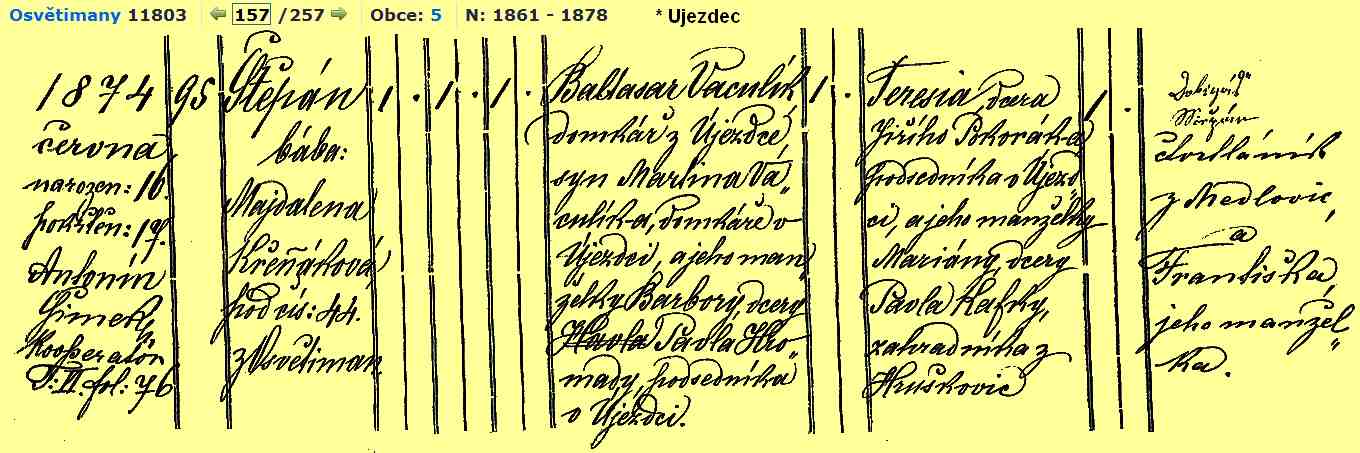 Osvětimany 11803 157 /257 Obce: 5 N: 1861 - 1878 * Ujezdec
1874
června
narozen: 16.
pokřtěn: 17.
Antonín
Šimek,
Kooperatór
T: II. fol: 76
95
Štěpán
bába:
Majdalena
Křeňáková
pod čís: 44.
z Osvětiman.
1 . 1 . 1 .
Baltasar Vaculík
domkář z Újezdce,
syn Martina Va„
culíka, domkáře v
Újezdci, a jeho man
želky Barbory, dcery
Pavla Hro„
mady, podsedníka
v Újezdci.
1 .
Teresia, dcera
Jiřího Pokoráka
podsedníka v Újezd„
ci, a jeho manželky
Mariány, dcery
Pavla Hafky,
zahradníka z
Hruškovic
1 .
z Medlovic,
a
Františka,
jeho manžel„
ka.